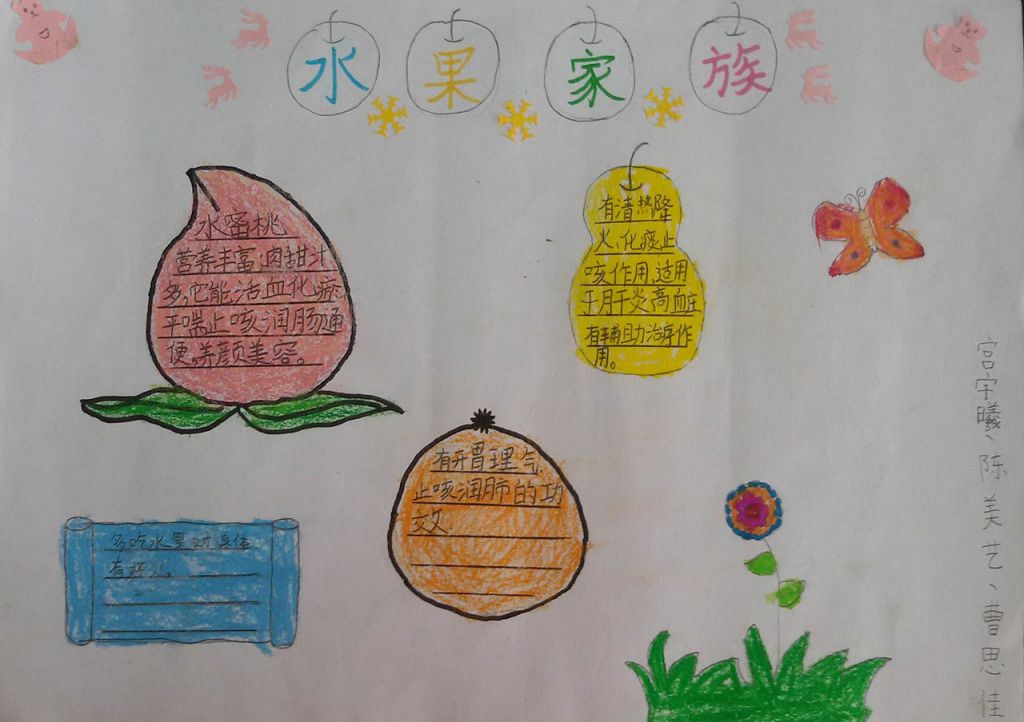 水果家族
水蜜桃
营养丰富,肉甜汁
多,它能活血化瘀
平喘止咳,润肠通
便,养颜美容。
有清热降
火,化痰止
咳作用,适用
于肝炎高血压
有辅助治疗作
用。
有开胃理气
止咳润肺的功
效
多吃水果对身体
有好处。
宫宇曦、陈美艺、曹思佳